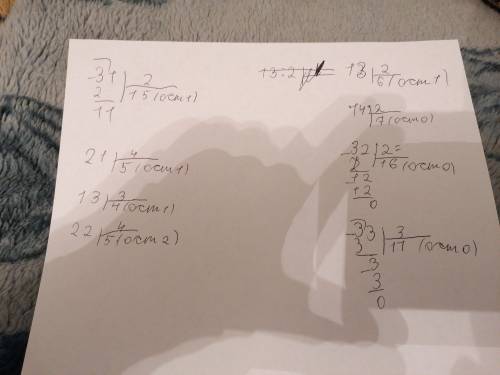 31 | 2
2 | 15 (ост 1)
11
21 | 4
5 (ост 1)
13 | 3
4 (ост 1)
22 | 4
5 (ост 2)
13:2
13 | 2
6 (ост 1)
14 | 2
7 (ост 0)
-32 | 2=
2 | 16 (ост 0)
12
12
0
-33 | 3
3 | 11 (ост 0)
3
3
0